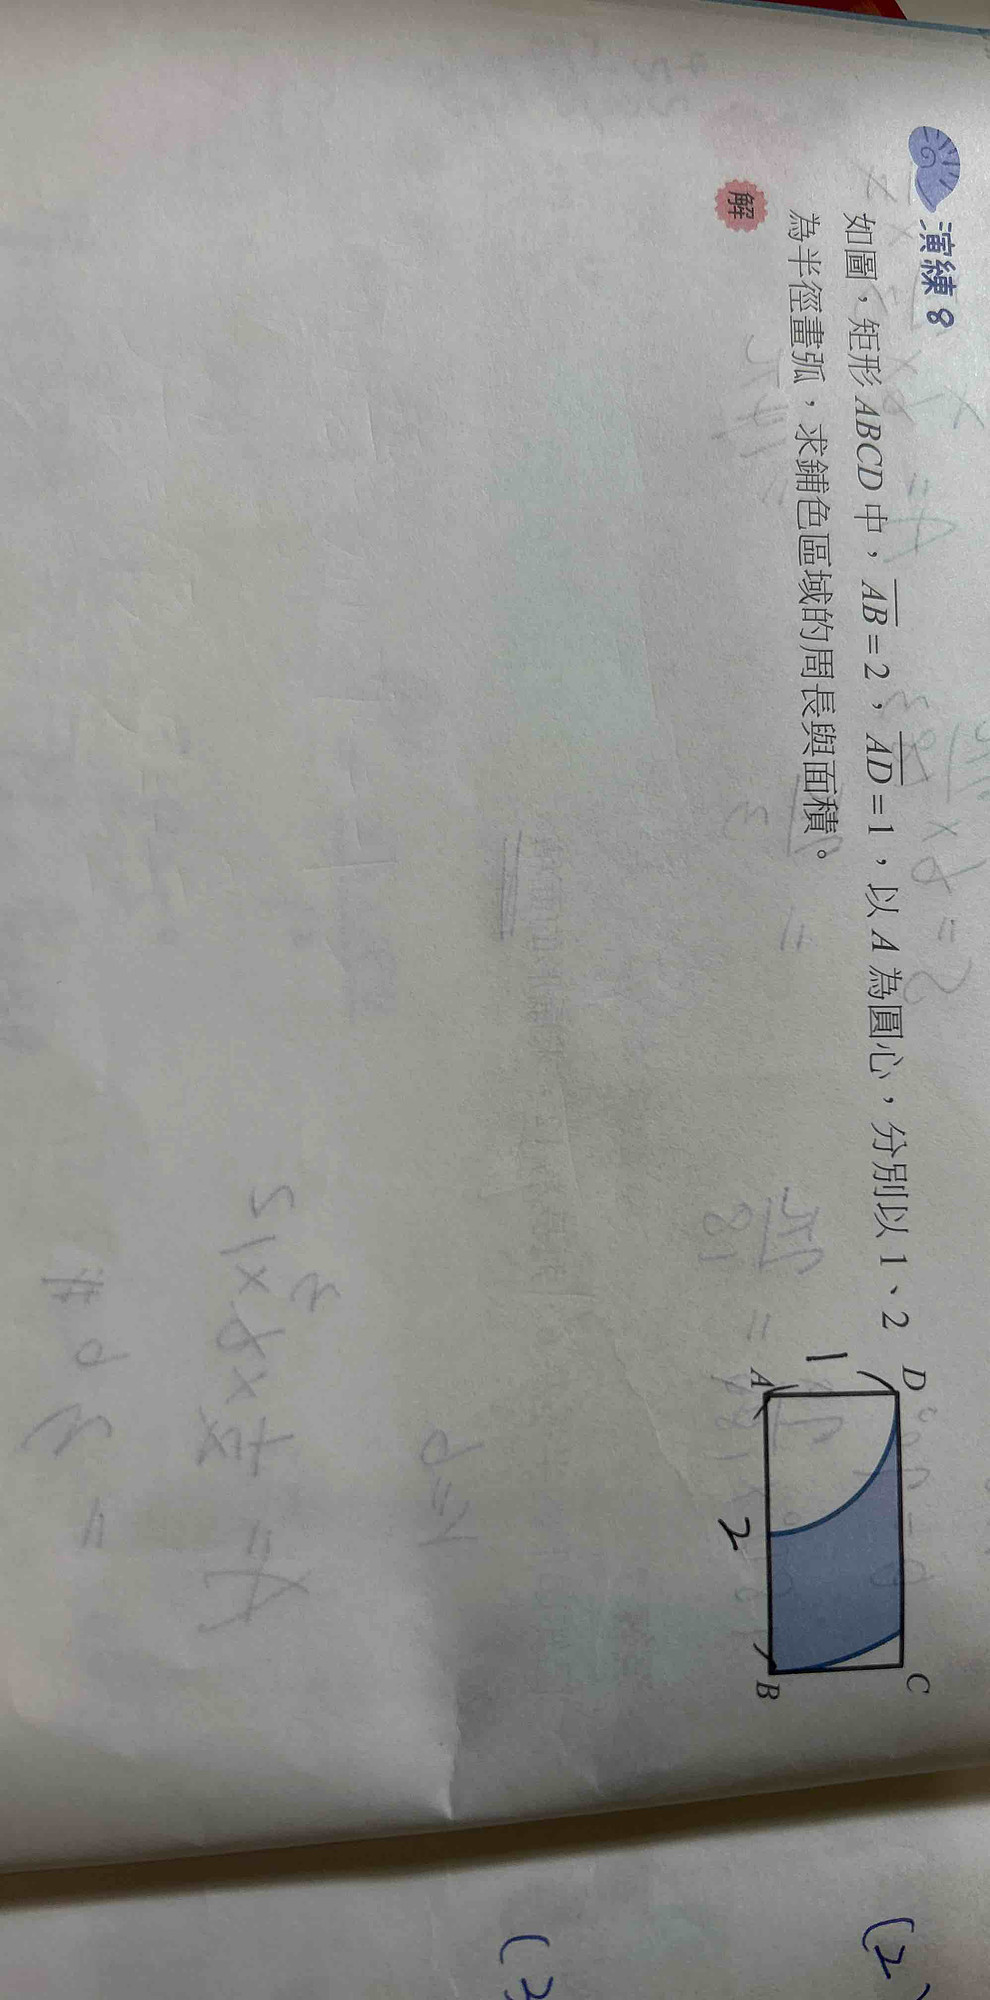 演練 8
如圖,矩形 ABCD 中,AB=2,AD=1,以 A 為圓心,分別以 1、2
為半徑畫弧,求鋪色區域的周長與面積。
解
D
C
1
A
2
B
(2)
(3